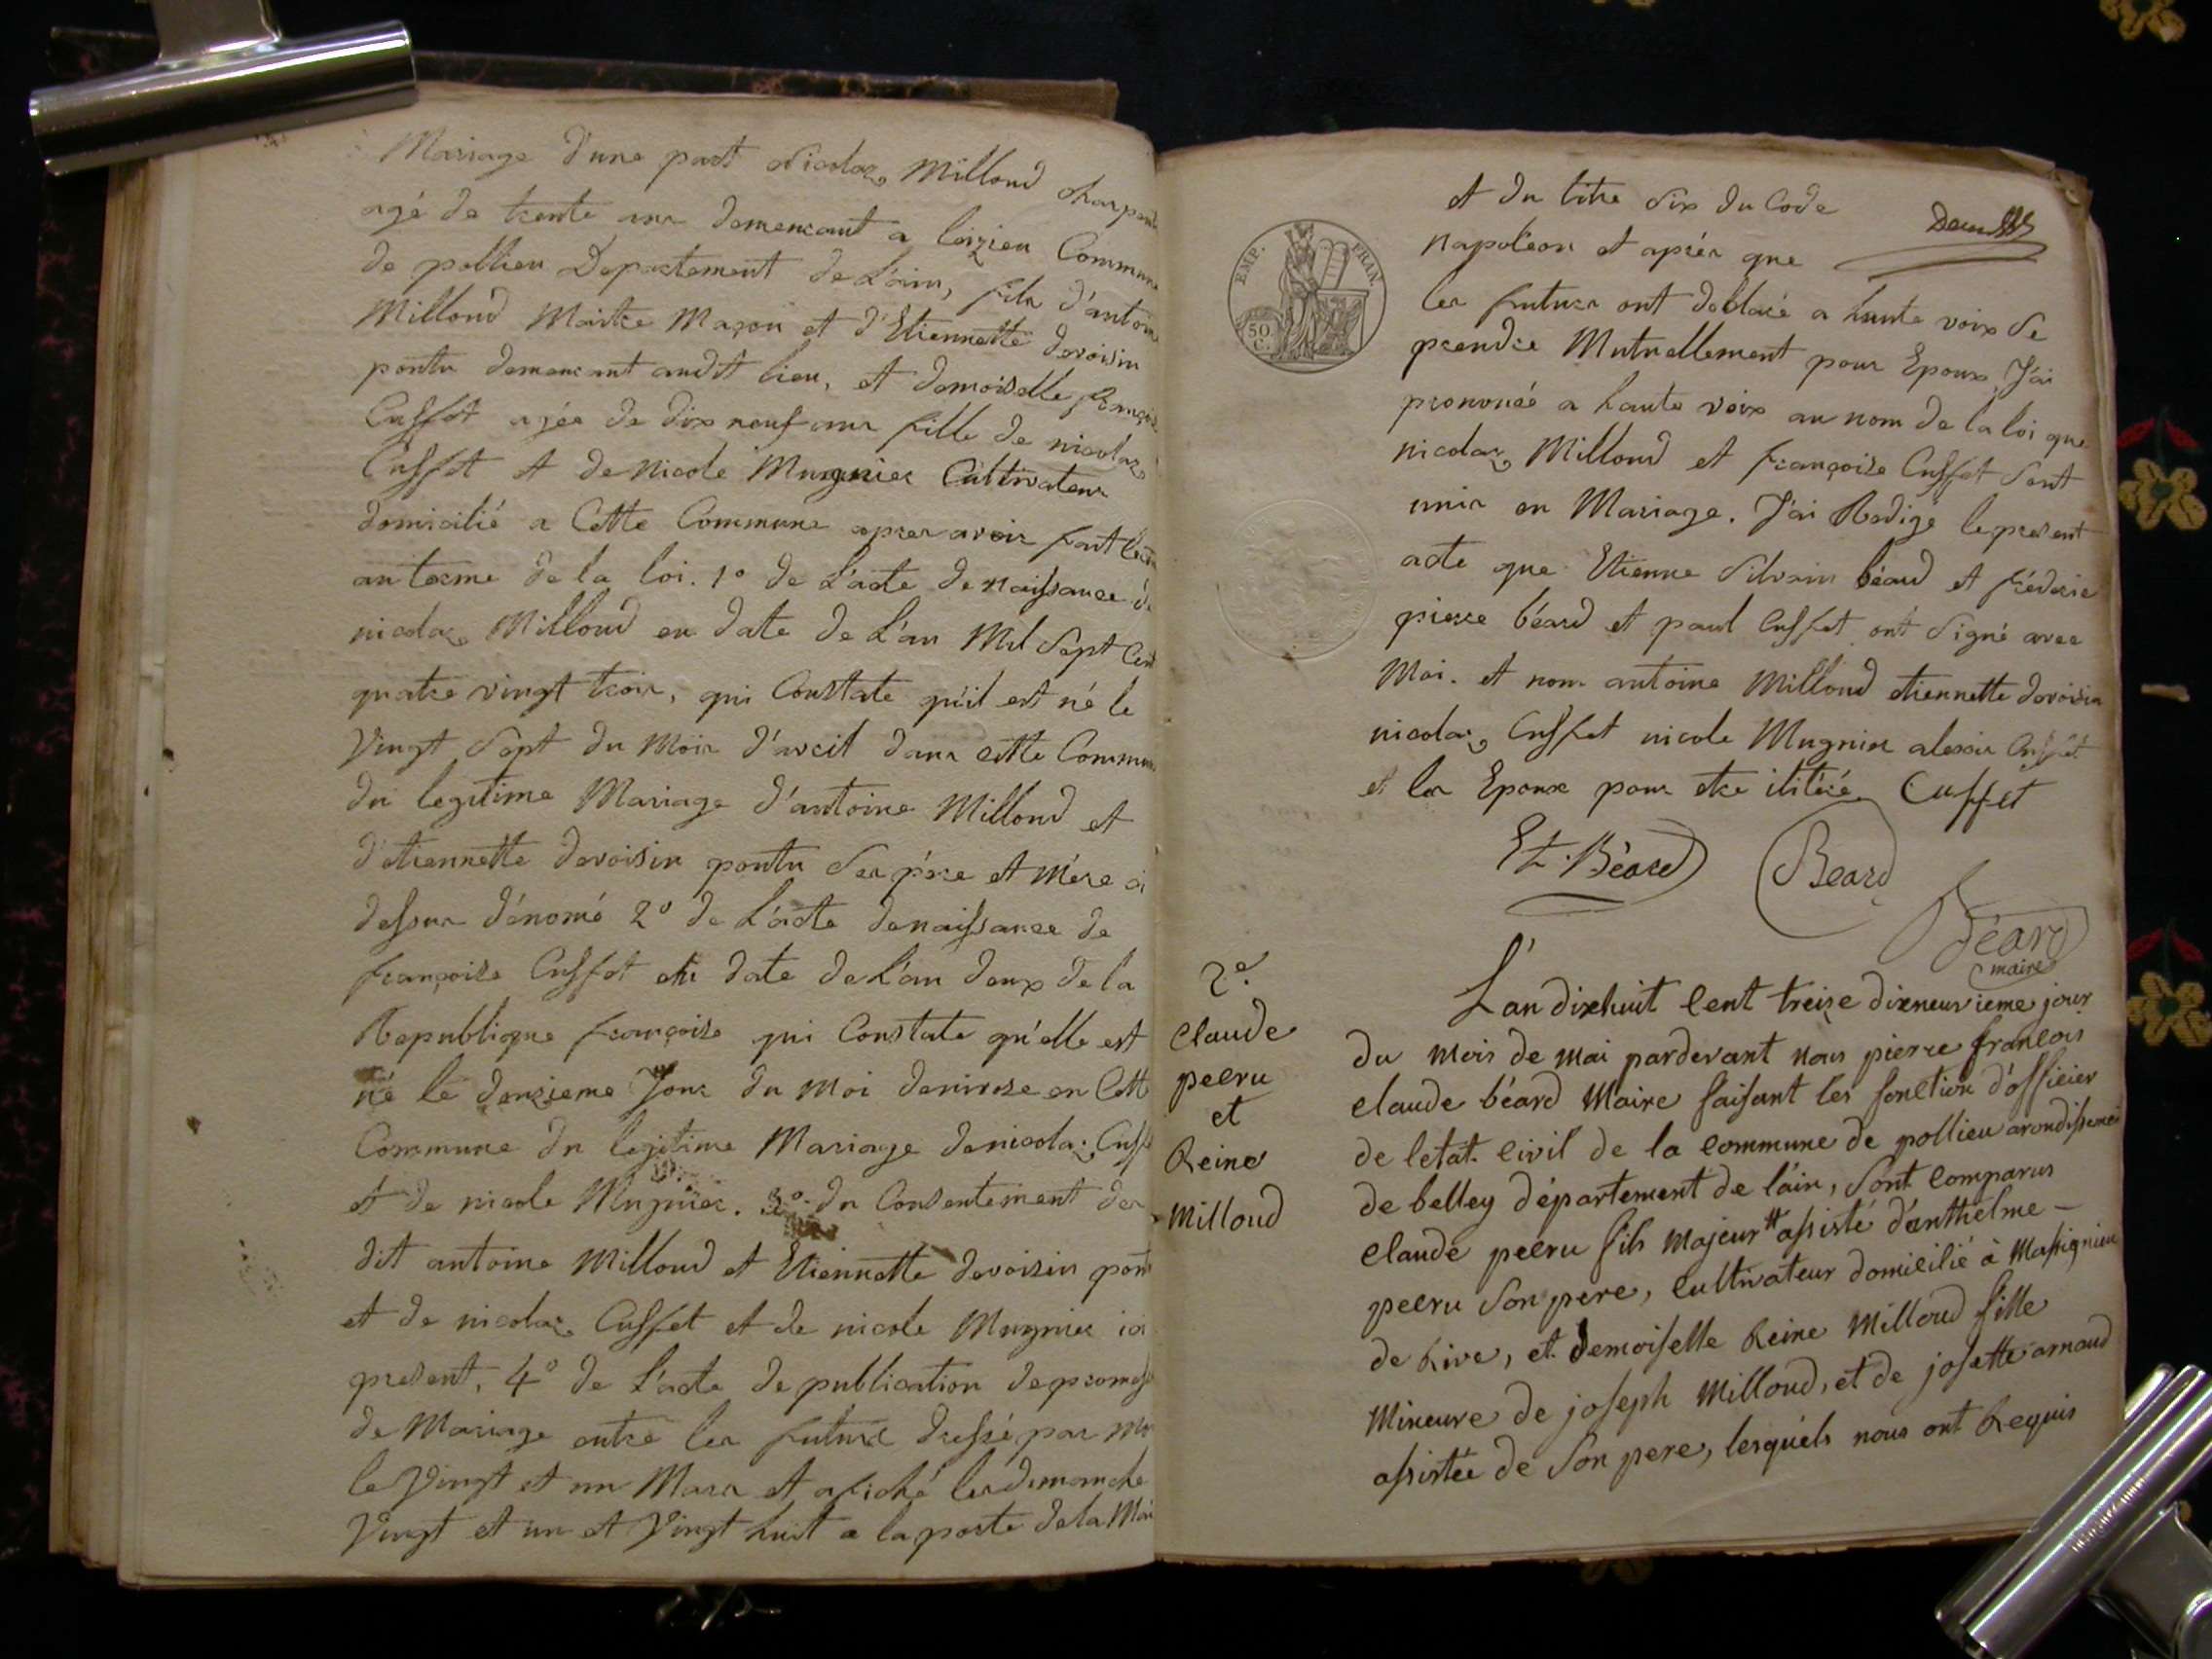 Mariage d'une part Nicolas Milloud charpen
agé de trente ans demeurant a loizieu Commun
de pollieu Departement de L'ain, fils d'antoin
Milloud Maitre Maçon et d'Etiennette devoisin
pontu demeurant audit lieu, et demoiselle françois
Cusset agée de dix neuf ans fille de nicolas
Cusset et de Nicole Mugnier Cultivateur
domicilié a Cette Commune apres avoir fait
au terme de la loi. 1º de L'acte de naissance de
nicolas Milloud en date de L'an Mil Sept Cent
quatre vingt trois, qui Constate qu'il est né le
Vingt Sept du Mois d'avril dans cette Commun
du legitime Mariage d'antoine Milloud et
d'etiennette devoisin pontu Ses père et Mère ci
dessus dénomé 2º de L'acte de naissance de
françoise Cusset en date de L'an deux de la
Republique françoise qui Constate qu'elle est
né le deuzieme Jour du Moi de nivose en Cett
Commune du legitime Mariage de nicolas Cuss
et de nicole Mugnier. 3º du Consentement des
dit antoine Milloud et Etiennette devoisin pont
et de nicolas Cusset et de nicole Mugnier ici
present, 4º de L'acte de publication de promess
de Mariage entre les futurs dressé par Moi
le Vingt et un Mars et afiché les dimanche
Vingt et un et Vingt huit a la porte de la Mai
et du titre Six du Code
napoléon et après que
les futurs ont déclaré a haute voix Se
prendre Mutuellement pour Epoux, J'ai
prononcé a haute voix au nom de la loi que
nicolas Milloud et françoise Cusset Sont
unis en Mariage. J'ai Redigé le present
acte que Etienne Silvain béard et fréderic
pierre béard et paul Cusset ont Signé avec
Moi. et non antoine Milloud etiennette devoisin
nicolas Cusset nicole Mugnier Cusset
et les Epoux pour etre ilitéré. Cusset
Et. Béard Beard
Béard
maire
EMP. FRAN.
50 C.
2e.
Claude
pecru
et
Reine
Milloud
L'an dixhuit Cent treize dixneuvieme jour
du mois de mai pardevant nous pierre françois
claude béard Maire faisant les fonction d'officier
de letat civil de la commune de pollieu arondissement
de belley département de l'ain, Sont Comparus
claude pecru fils majeur # assisté d'anthelme —
pecru Son pere, cultivateur domicilié à Massignieu
de Rive, et demoiselle Reine Milloud fille
Mineure de joseph Milloud, et de josette arnaud
assistée de Son pere, lesquels nous ont Requis